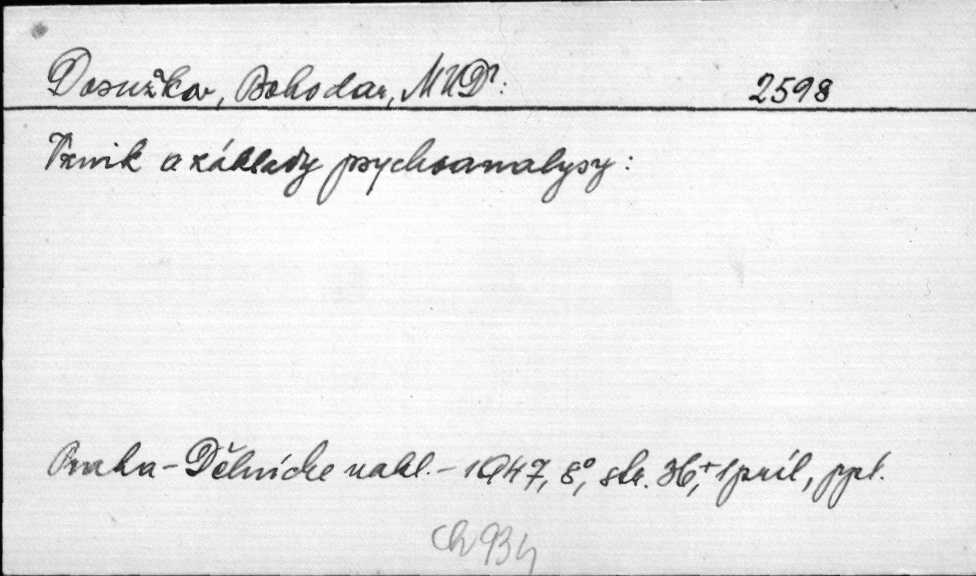 Dosužkov, Bohodar, MUDr. 2598
Vznik a základy psychoanalysy:
Praha - Dělnické nakl. - 1947, 8°, str. 36, + 1 příl, ppl.
Ch 934